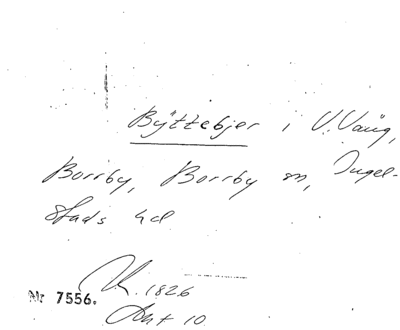 Byttebjer i V. Vång,
Borrby, Borrby sn, Ingel-
stads hd
1826
Nr 7556.
Akt 10